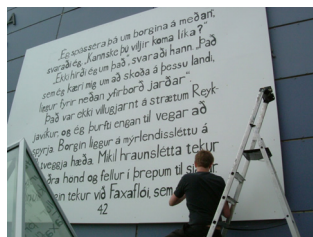 „Eg spássera þá um borgina á meðan,
svaraði ég. „Kannske þú viljir koma líka?"
„Ekki hirði ég um það", svaraði hann. „Það
sem ég kæri mig um að skoða á þessu landi,
liggur fyrir neðan yfirborð jarðar".
Það var ekki villugjarnt á strætum Reyk-
javíkur, og ég þurfti engan til vegar að
spyrja. Borgin liggur á mýrlendissléttu á
tveggja hæða. Mikil hraunslétta tekur
aðra hönd og fellur í þrepum til
tekur við Faxaflói, sem
42